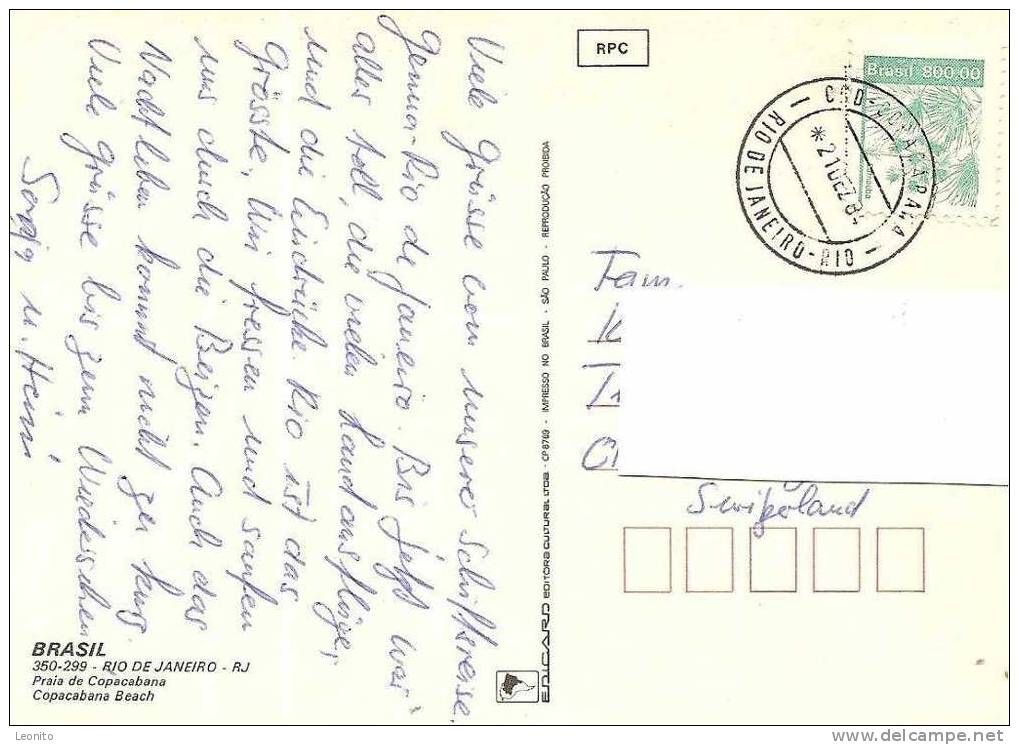 Viele Grüsse von unserer Schiffsreise.
Genua-Rio de janeiro. Bis jetzt war
alles toll, die vielen Landausflüge,
und die Eindrücke. Rio ist das
Grösste, Wir fressen und saufen
uns durch die Beizen. Auch das
Nachtleben kommt nicht zu kurz.
Viele Grüsse bis zum Wiedersehen
u. Heini
BRASIL
350-299 - RIO DE JANEIRO - RJ
Praia de Copacabana
Copacabana Beach
ERICARD EDITORA CULTURAL LTDA - CP 8769 - IMPRESSO NO BRASIL - SÃO PAULO - REPRODUÇÃO PROIBIDA
RPC
Brasil 800,00
COPACABANA
*21DEZ84
RIO DE JANEIRO-RIO
Fam.
Switzoland
Leonito
www.delcampe.net